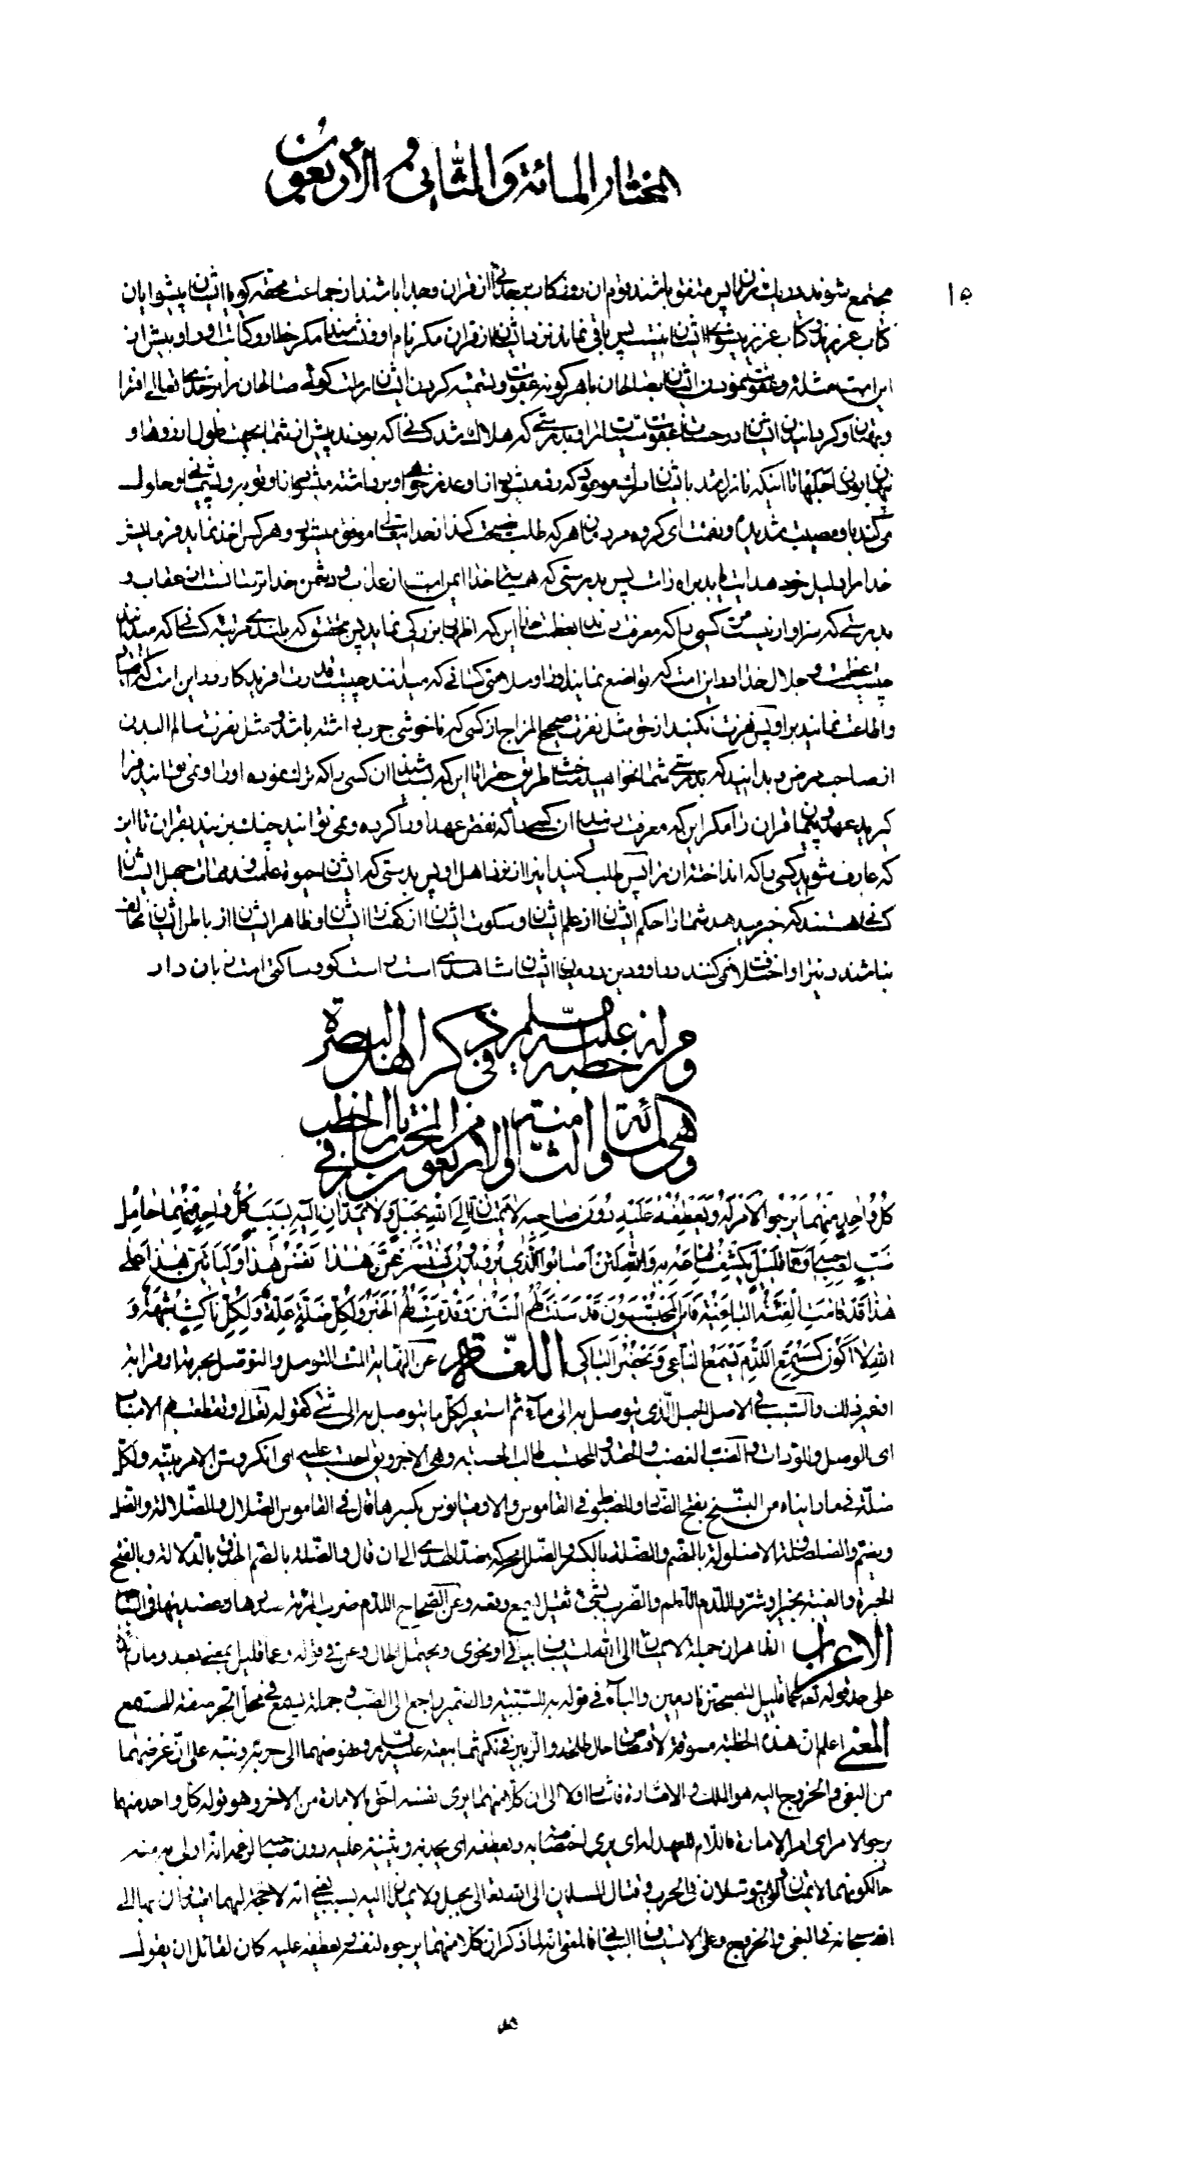 المختار المائة والثانی و الأربعون
١٥
مجتمع شوند در یک زمان پس متفق باشند قوم ان روزکار بر جدائی از قران و جدا باشند از جماعت محقه کویا ایشان پیشوایان
کتاب عزیزند و کتاب عزیز پیشوای ایشان نیست پس باقی نماند نزد ایشان از قران مکر نام او و نشناسند مکر خط او و کتابت او را و پیش از
این است مثله و عقوبت نمودن ایشان بصالحان با هر کونه عقوبت و تسمیه کردن ایشان راست کوئی صالحان را بر خدای تعالی افترا
و بهتان و کردانیدن ایشان در حسنات عقوبت سیئات را و بدرستی که هلاک شد کسانی که بودند پیش از شما بجهت طول ارزوها و
پنهان بودن اجلها تا اینکه نازل شد بایشان مرک موعودی که رد میشود از او عذر خواهی و برداشته میشود از او توبه و پشیمانی و حلول
می کند با او مصیبت شدیده و نقمت ای کروه مردمان هر که طلب نصیحت کند از خدا یتعالی موفق میشود و هر کس اخذ نماید فرمایش
خدا را دلیل خود هدایت یابد براه راست پس بدرستی که همسایه خدا ایمن است از عذاب و دشمن خدا ترسانست از عقاب و
بدرستی که سزاوار نیست مر کسی را که معرفت رساند بعظمت خدا این که اظهار بزرکی نماید پس بتحقیق که بلندی مرتبه کسانی که میدانند
چیست عظمت و جلال خدا در این است که تواضع نمایند او را و سلامتی کسانی که میدانند چیست قدرت افریدکار در این است که انقیاد
و اطاعت نمایند بر او پس نفرت نکنید از حق مثل نفرت صحیح المزاج از کسی که ناخوشی جرب داشته باشد و مثل نفرت سالم البدن
از صاحب مرض و بدانید که بدرستی شما نخواهید شناخت طریق حق را تا این که بشناسید ان کسی را که ترک نموده او را و نمی توانید فرا
کیرید عهد و پیمان قران را مکر این که معرفت رسانید ان کسی را که نقض عهد او را کرده و نمی توانید چنک بزنید بقران تا این
که عارف شوید کسی را که انداخته ان را پس طلب کنید اینرا از نزد اهل او پس بدرستی که ایشان حیوة علمند و ممات جهل ایشان
کسانی هستند که خبر میدهد شما را حکم ایشان از علم ایشان و سکوت ایشان از کفتار ایشان و ظاهر ایشان از باطن ایشان مخالف
نباشند دینرا و اختلاف نمی کنند در او و دین در میان ایشان شاهدی است راست کو و ساکتی است زبان دار
و من خطبة له علیه السلام فی ذکر اهل البصرة
و هی المائة و الثامنة و الاربعون من المختار فی باب الخطب
کُلُّ وٰاحِدٍ مِنْهُمٰا یَرْجُوا الْاَمْرَ لَهُ وَ یَعْطِفُهُ عَلَیْهِ دُوْنَ صٰاحِبِهِ لٰا یَمُتّٰانِ اِلَی اللّٰهِ بِحَبْلٍ وَ لٰا یَمُدّٰانِ اِلَیْهِ بِسَبَبٍ کُلُّ وٰاحِدٍ مِنْهُمٰا حٰامِلُ
ضَبٍّ لِصٰاحِبِهِ وَ عَمّٰا قَلیلٍ یُکْشَفُ قِنٰاعُهُ بِهِ وَ اللّٰهِ لَئِنْ اَصٰابُوا الَّذی یُریدُوْنَ لَیَنْتَزِعَنَّ هٰذٰا نَفْسَ هٰذٰا وَ لَیَأْتِیَنَّ هٰذٰا عَلٰی
هٰذٰا قَدْ قٰامَتِ الْفِئَةُ الْبٰاغِیَةُ فَاَیْنَ الْمُحْتَسِبُوْنَ قَدْ سُنَّتْ لَهُمُ السُّنَنُ وَ قُدِّمَ لَهُمُ الْخَبَرُ وَ لِکُلِّ ضَلَّةٍ عِلَّةٌ وَ لِکُلِّ نٰاکِثٍ شُبْهَةٌ وَ
اللّٰهِ لٰا اَکُوْنُ کَمُسْتَمِعِ اللَّدْمِ یَسْمَعُ النّٰاعِیَ وَ یَحْضُرُ الْبٰاکِیَ اللغة عن النهایة المت التوسل و التوصل بحرمة او قرابة
او غیر ذلک و السبب فی الاصل الحبل الذی یتوصل به الی ماء ثم استعیر لکل ما یتوصل به الی شئ کقوله تعالی و تقطعت بهم الاسباب
ای الوصل و المودات و الضب الغضب و الحقد و المحتسب طالب الحسبة و هی الاجر و یق احتسب علیه ای انکر و سن الامر بینه و لکل
ضلة فی ما رایناه من النسخ بفتح الضاد و المضبوط فی القاموس و الاوقیانوس بکسرها قال فی القاموس الضلال و الضلالة و الضل
و یضم و الضلضلة و الاضلولة بالضم و الضلة بالکسر و الضلل محرکة ضد الهدی الی ان قال و الضلة بالضم الحذق بالدلالة و بالفتح
الحیرة و الغیبة بخیر او شر و اللدم اللطم و الضرب بشئ ثقیل یسمع وقعه و عن الصحاح اللدم ضرب المرئة صدرها و عضدیها فی النیاحة
الاعراب الظاهر ان جملة لا یمتان الی الله استیناف بیانی او نحوی و یحتمل الحال و عن فی قوله و عما قلیل بمعنی بعد و ما زائدة
علی حد قوله تعم عما قلیل لیصبحن نادمین و الباء فی قوله به للسببیة و الضمیر راجع الی الضب و جملة یسمع فی محل الجر صفة للمستمع
المعنی اعلم ان هذه الخطبة مسوقة لاقتصاص حال طلحة و الزبیر فی نکثهما بیعته علیه السلام و نهوضهما الی حربه و نبه علی ان غرضهما
من البغی و الخروج الیه هو الملک و الامارة فاشار اولا الی ان کلا منهما یری نفسه احق بالامارة من الاخر و هو قوله کل واحد منهما
یرجو الامر ای امر الامارة فاللام للعهد له ای یری اختصاصه به و یعطفه ای یجذبه و یثنیه علیه دون صاحبه لزعمه انه اولی به منه
حالکونهما لا یمتان ای لا یتوسلان فی الحرب و قتال المسلمین الی الله تعالی بحبل و لا یمدان الیه بسبب یعنی انه لا حجة لهما یعتذران بها الی
الله سبحانه فی البغی و الخروج و علی الاستیناف البیانی فالمعنی انه لما ذکر ان کلا منهما یرجوه لنفسه و یعطفه علیه کان لقائل ان یقول